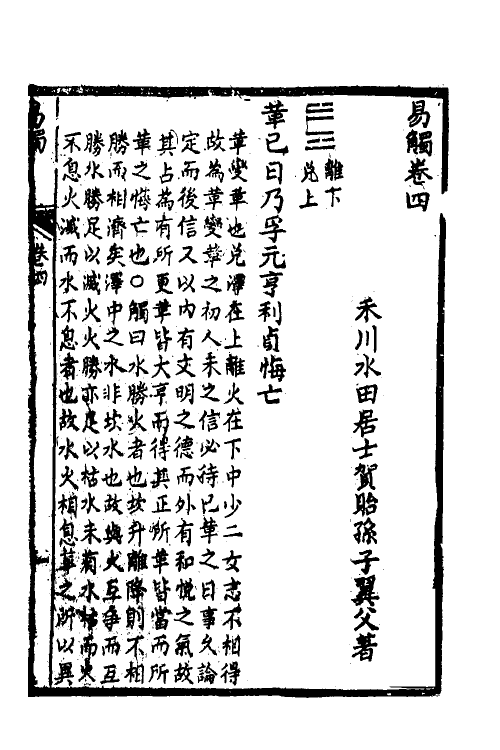 易觸卷四
禾川水田居士賀貽孫子翼父著
離下
兌上
革已日乃孚元亨利貞悔亡
革變革也兌澤在上離火在下中少二女志不相得
故為革變革之初人未之信必待已革之日事久論
定而後信又以內有文明之德而外有和悅之氣故
其占為有所更革皆大亨而得其正所革皆當而所
革之悔亡也○觸曰水勝火者也坎升離降則不相
勝而相濟矣澤中之水非坎水也故與火互爭而互
勝水勝足以滅火火勝亦足以枯水未有水枯而火
不息火滅而水不息者也故水火相息革之所以異
易觸
卷四
一